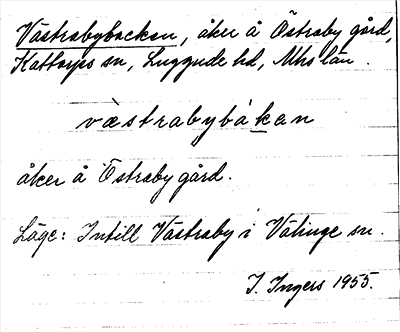 Västrabybacken, åker å Östraby gård,
Kattarps sn, Luggude hd, Mhs län.
væstrabybàkan
åker å Östraby gård.
Läge: Intill Västraby i Välinge sn.
I. Ingers 1955.